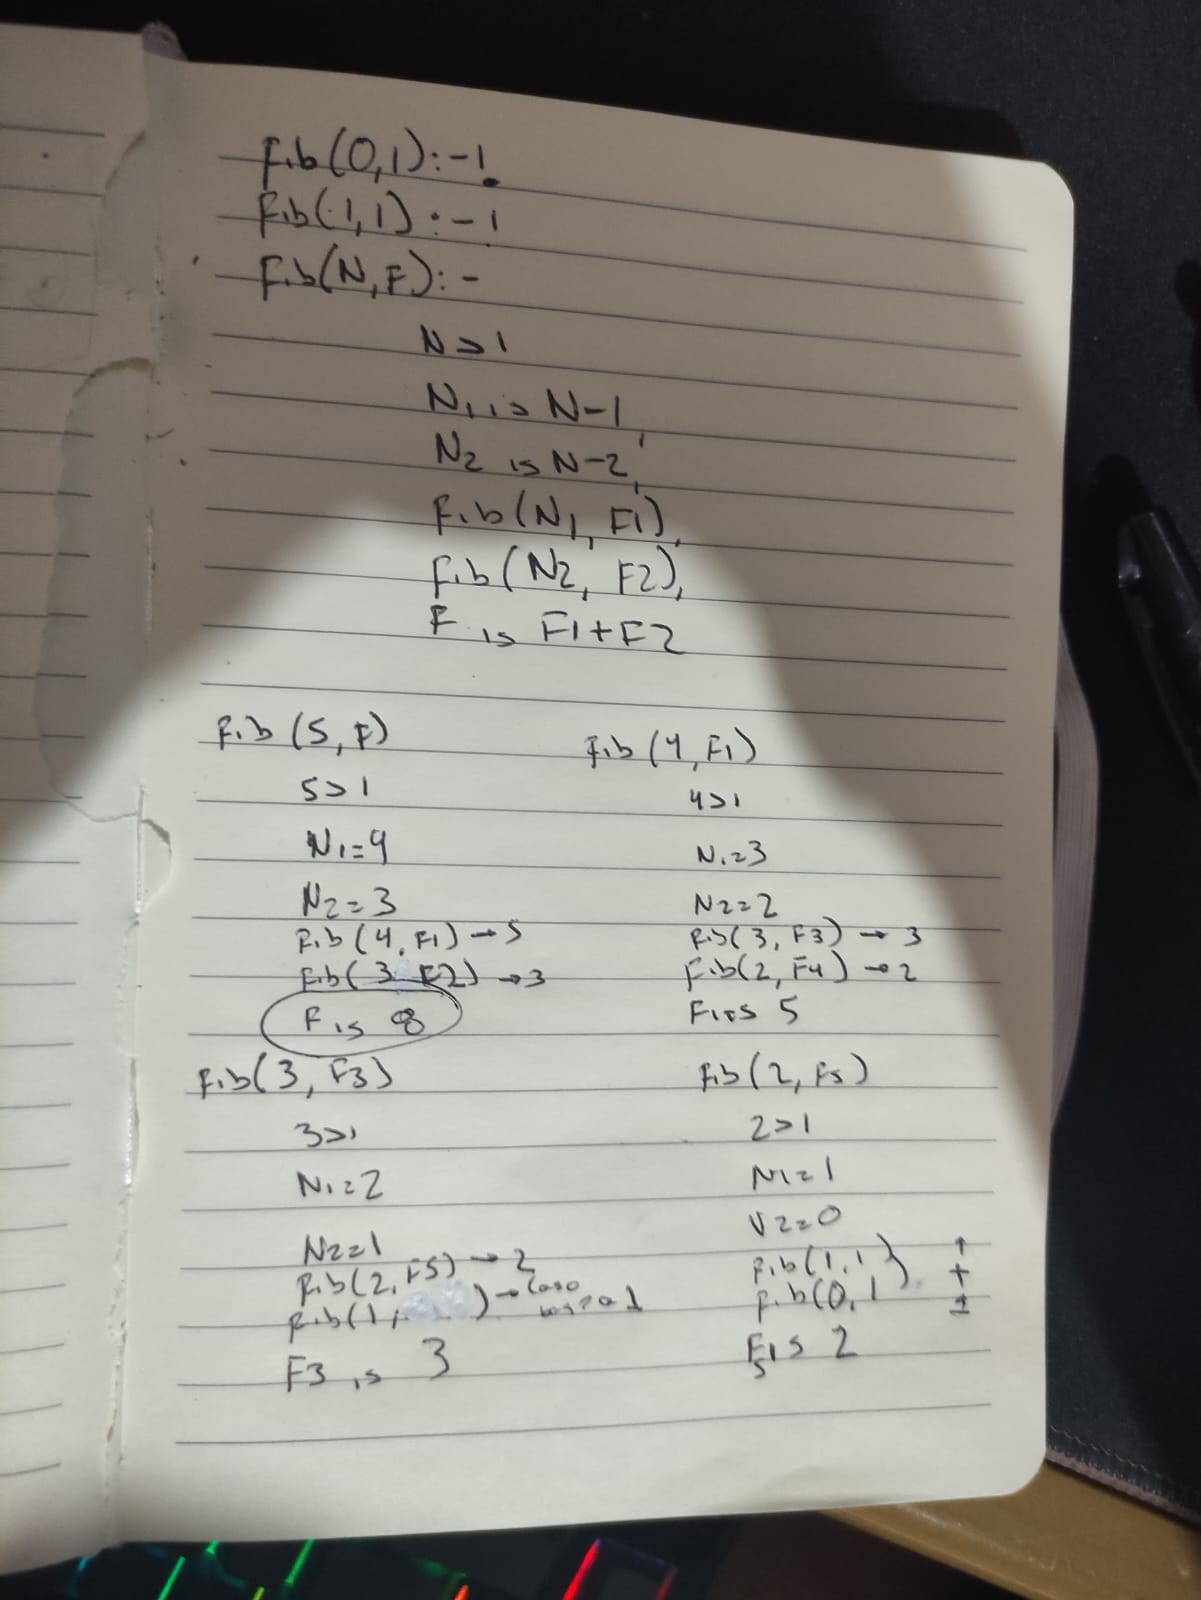 fib(0,1):-!.
fib(1,1):-!
fib(N,F):-
N>1
N1 is N-1,
N2 is N-2,
fib(N1, F1),
fib(N2, F2),
F is F1+F2
fib(5,F)
5>1
N1=4
N2=3
fib(4,F1)→5
fib(3 F2)→3
F is 8
fib(4,F1)
4>1
N1=3
N2=2
fib(3, F3)→3
fib(2, F4)→2
F1 is 5
fib(3, F3)
3>1
N1=2
N2=1
fib(2,F5)→2
fib(1, )→Caso base 1
F3 is 3
fib(2, F5)
2>1
N1=1
N2=0
fib(1,1) 1
+
fib(0,1 1
F5 is 2